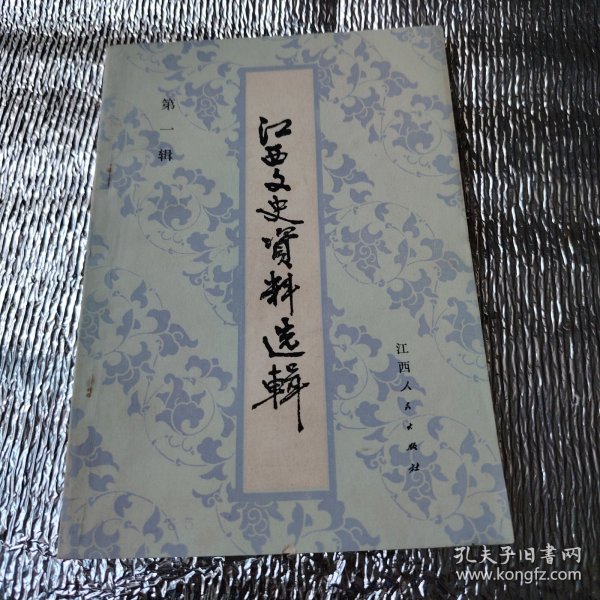 第一辑
江西文史資料选輯
江西人民出版社
孔夫子旧書网
www.kongfz.com